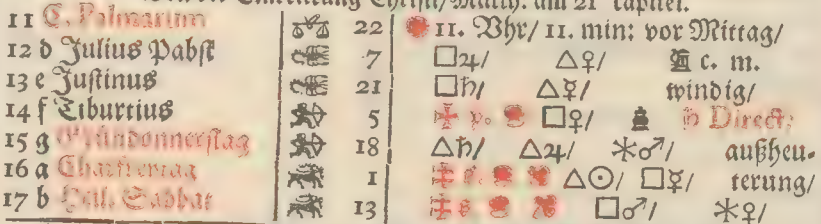 Christi/ Matth. am 21 capitel.
11 C. Palmarum 22 11. Vhr/ 11. min: vor Mittag/
12 d Julius Pabst 7 □♃/ △♀/ c. m.
13 e Justinus 21 □♄/ △☿/ windig/
14 f Tiburtius 5 p. □♀/ ♄ Direct;
15 g Gründonnerstag 18 △♄/ △♃/ ⚹♂/ außheu-
16 a Charfreytag 1 △☉/ □☿/ terung/
17 b Heil. Sabbat 13 □♂/ ⚹♀/